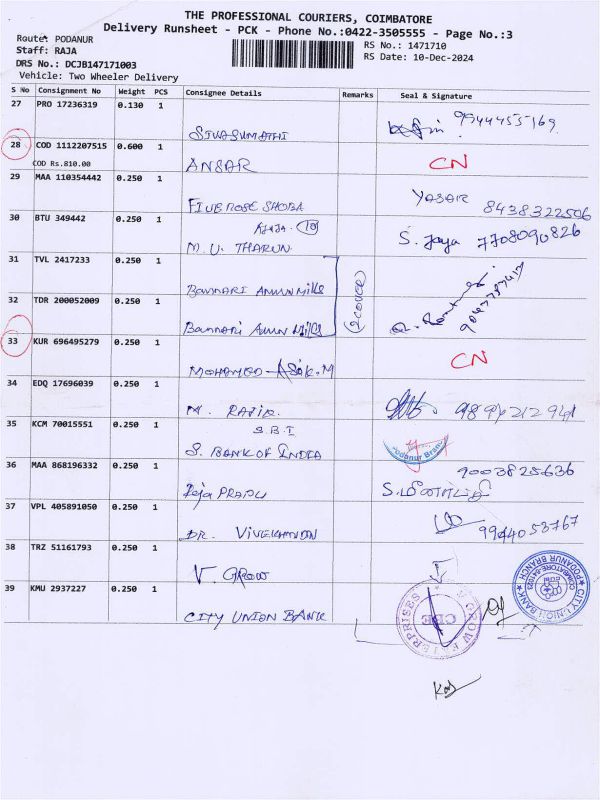 THE PROFESSIONAL COURIERS, COIMBATORE
Delivery Runsheet - PCK - Phone No.:0422-3505555 - Page No.:3
Route: PODANUR
Staff: RAJA
DRS No.: DCJB147171003
Vehicle: Two Wheeler Delivery
RS No.: 1471710
RS Date: 10-Dec-2024
S No Consignment No Weight PCS Consignee Details Remarks Seal & Signature
27 PRO 17236319 0.130 1 SIVASUMATHI 9944455169
28 COD 1112207515 0.600 1 ANSAR CN
COD Rs.810.00
29 MAA 110354442 0.250 1 FIVE ROSE SHOBA YASAR 8438322506
30 BTU 349442 0.250 1 M.U. THARUN S. Jaya 7708090826
31 TVL 2417233 0.250 1 Bannari Amman Mills
32 TDR 200052009 0.250 1 Bannari Amman Mills (2 COVER)
33 KUR 696495279 0.250 1 MOHAMED - ASIK.M CN
34 EDQ 17696039 0.250 1 M. RAFIK
35 KCM 70015551 0.250 1 S.B.I
S. BANK OF INDIA Podanur Branch
36 MAA 868196332 0.250 1 Raja PRABU 9003825636
37 VPL 405891050 0.250 1 DR. VIVEKANANDAN 9944053767
38 TRZ 51161793 0.250 1 V GROW V GROW ENTERPRISES CBE
39 KMU 2937227 0.250 1 CITY UNION BANK CITY UNION BANK PODANUR BRANCH